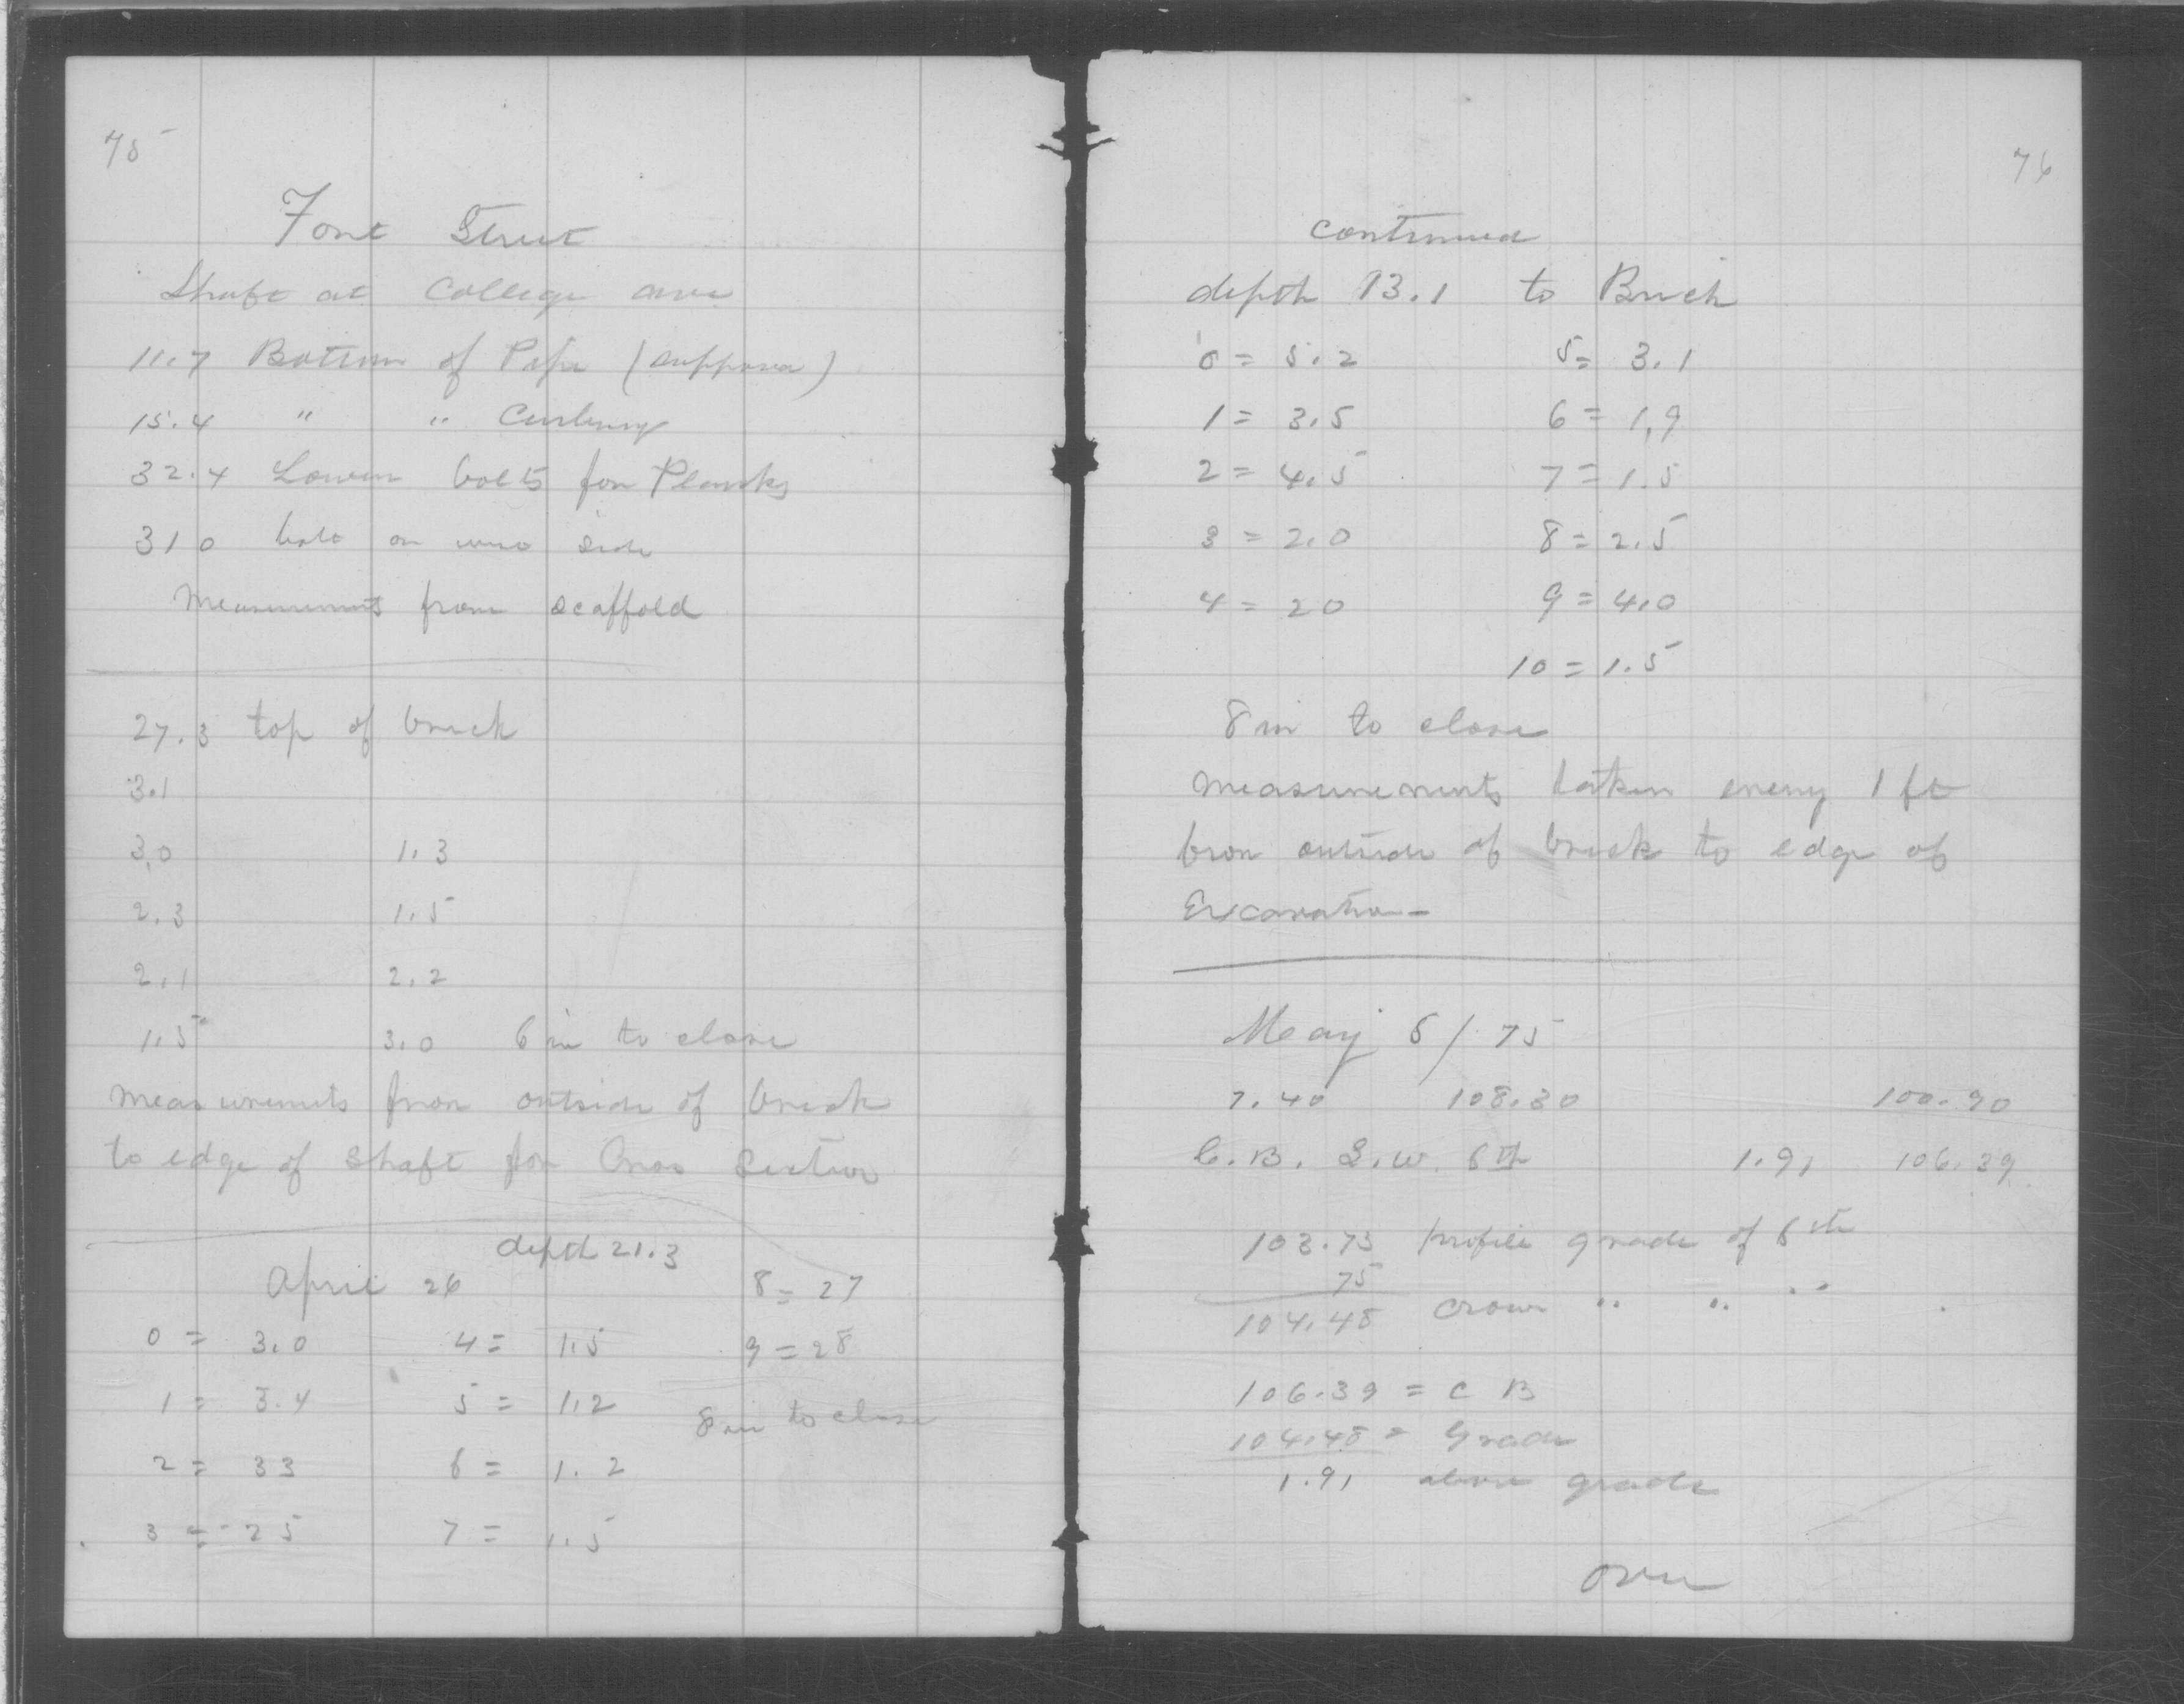 75
Fort Street
Shaft at College ave
11.7 Bottom of Pipe (supposed)
15.4 " " Curbing
32.4 Lower bolts for Planks
31 0 bolt on west side
Measurements from scaffold
27.3 top of brick
3.1
3.0 1.3
2.3 1.5
2.1 2.2
1.5 3.0 6 in to close
measurements from outside of brick
to edge of shaft for Cross Section
depth 21.3
April 26 8 = 27
0 = 3.0 4 = 1.5 9 = 28
1 = 3.4 5 = 1.2 8 in to close
2 = 33 6 = 1.2
3 = 25 7 = 1.5
76
continued
depth 13.1 to Brick
0 = 5.2 5 = 3.1
1 = 3.5 6 = 1.9
2 = 4.5 7 = 1.5
3 = 2.0 8 = 2.5
4 = 20 9 = 4.0
10 = 1.5
8 in to close
measurements taken every 1 ft
from outside of brick to edge of
Excavation -
May 6 / 75
7.40 108.30 100.90
C.B. S.W. 6th 1.91 106.39
103.73 profile grade of 6th
75
104.48 crown " " "
106.39 = C B
104.48 = Grade
1.91 above grade
over